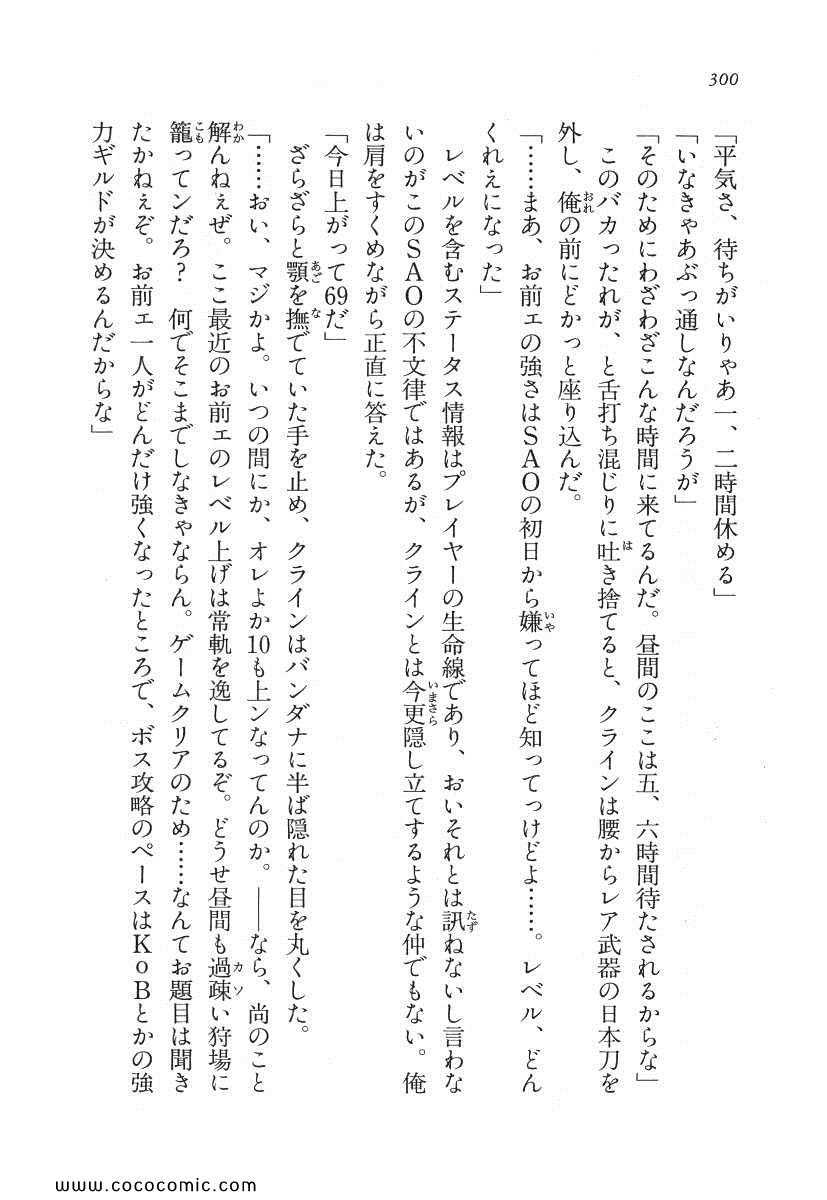 300
「平気さ、待ちがいりゃあ一、二時間休める」
「いなきゃあぶっ通しなんだろうが」
「そのためにわざわざこんな時間に来てるんだ。昼間のここは五、六時間待たされるからな」
　このバカったれが、と舌打ち混じりに吐き捨てると、クラインは腰からレア武器の日本刀を
外し、俺の前にどかっと座り込んだ。
「……まあ、お前ェの強さはSAOの初日から嫌ってほど知ってっけどよ……。レベル、どん
くれえになった」
　レベルを含むステータス情報はプレイヤーの生命線であり、おいそれとは訊ねないし言わな
いのがこのSAOの不文律ではあるが、クラインとは今更隠し立てするような仲でもない。俺
は肩をすくめながら正直に答えた。
「今日上がって69だ」
　ざらざらと顎を撫でていた手を止め、クラインはバンダナに半ば隠れた目を丸くした。
「……おい、マジかよ。いつの間にか、オレよか10も上ンなってんのか。――なら、尚のこと
解んねぇぜ。ここ最近のお前ェのレベル上げは常軌を逸してるぞ。どうせ昼間も過疎い狩場に
籠ってンだろ？　何でそこまでしなきゃならん。ゲームクリアのため……なんてお題目は聞き
たかねぇぞ。お前ェ一人がどんだけ強くなったところで、ボス攻略のペースはKoBとかの強
力ギルドが決めるんだからな」
http://www.cococomic.com/